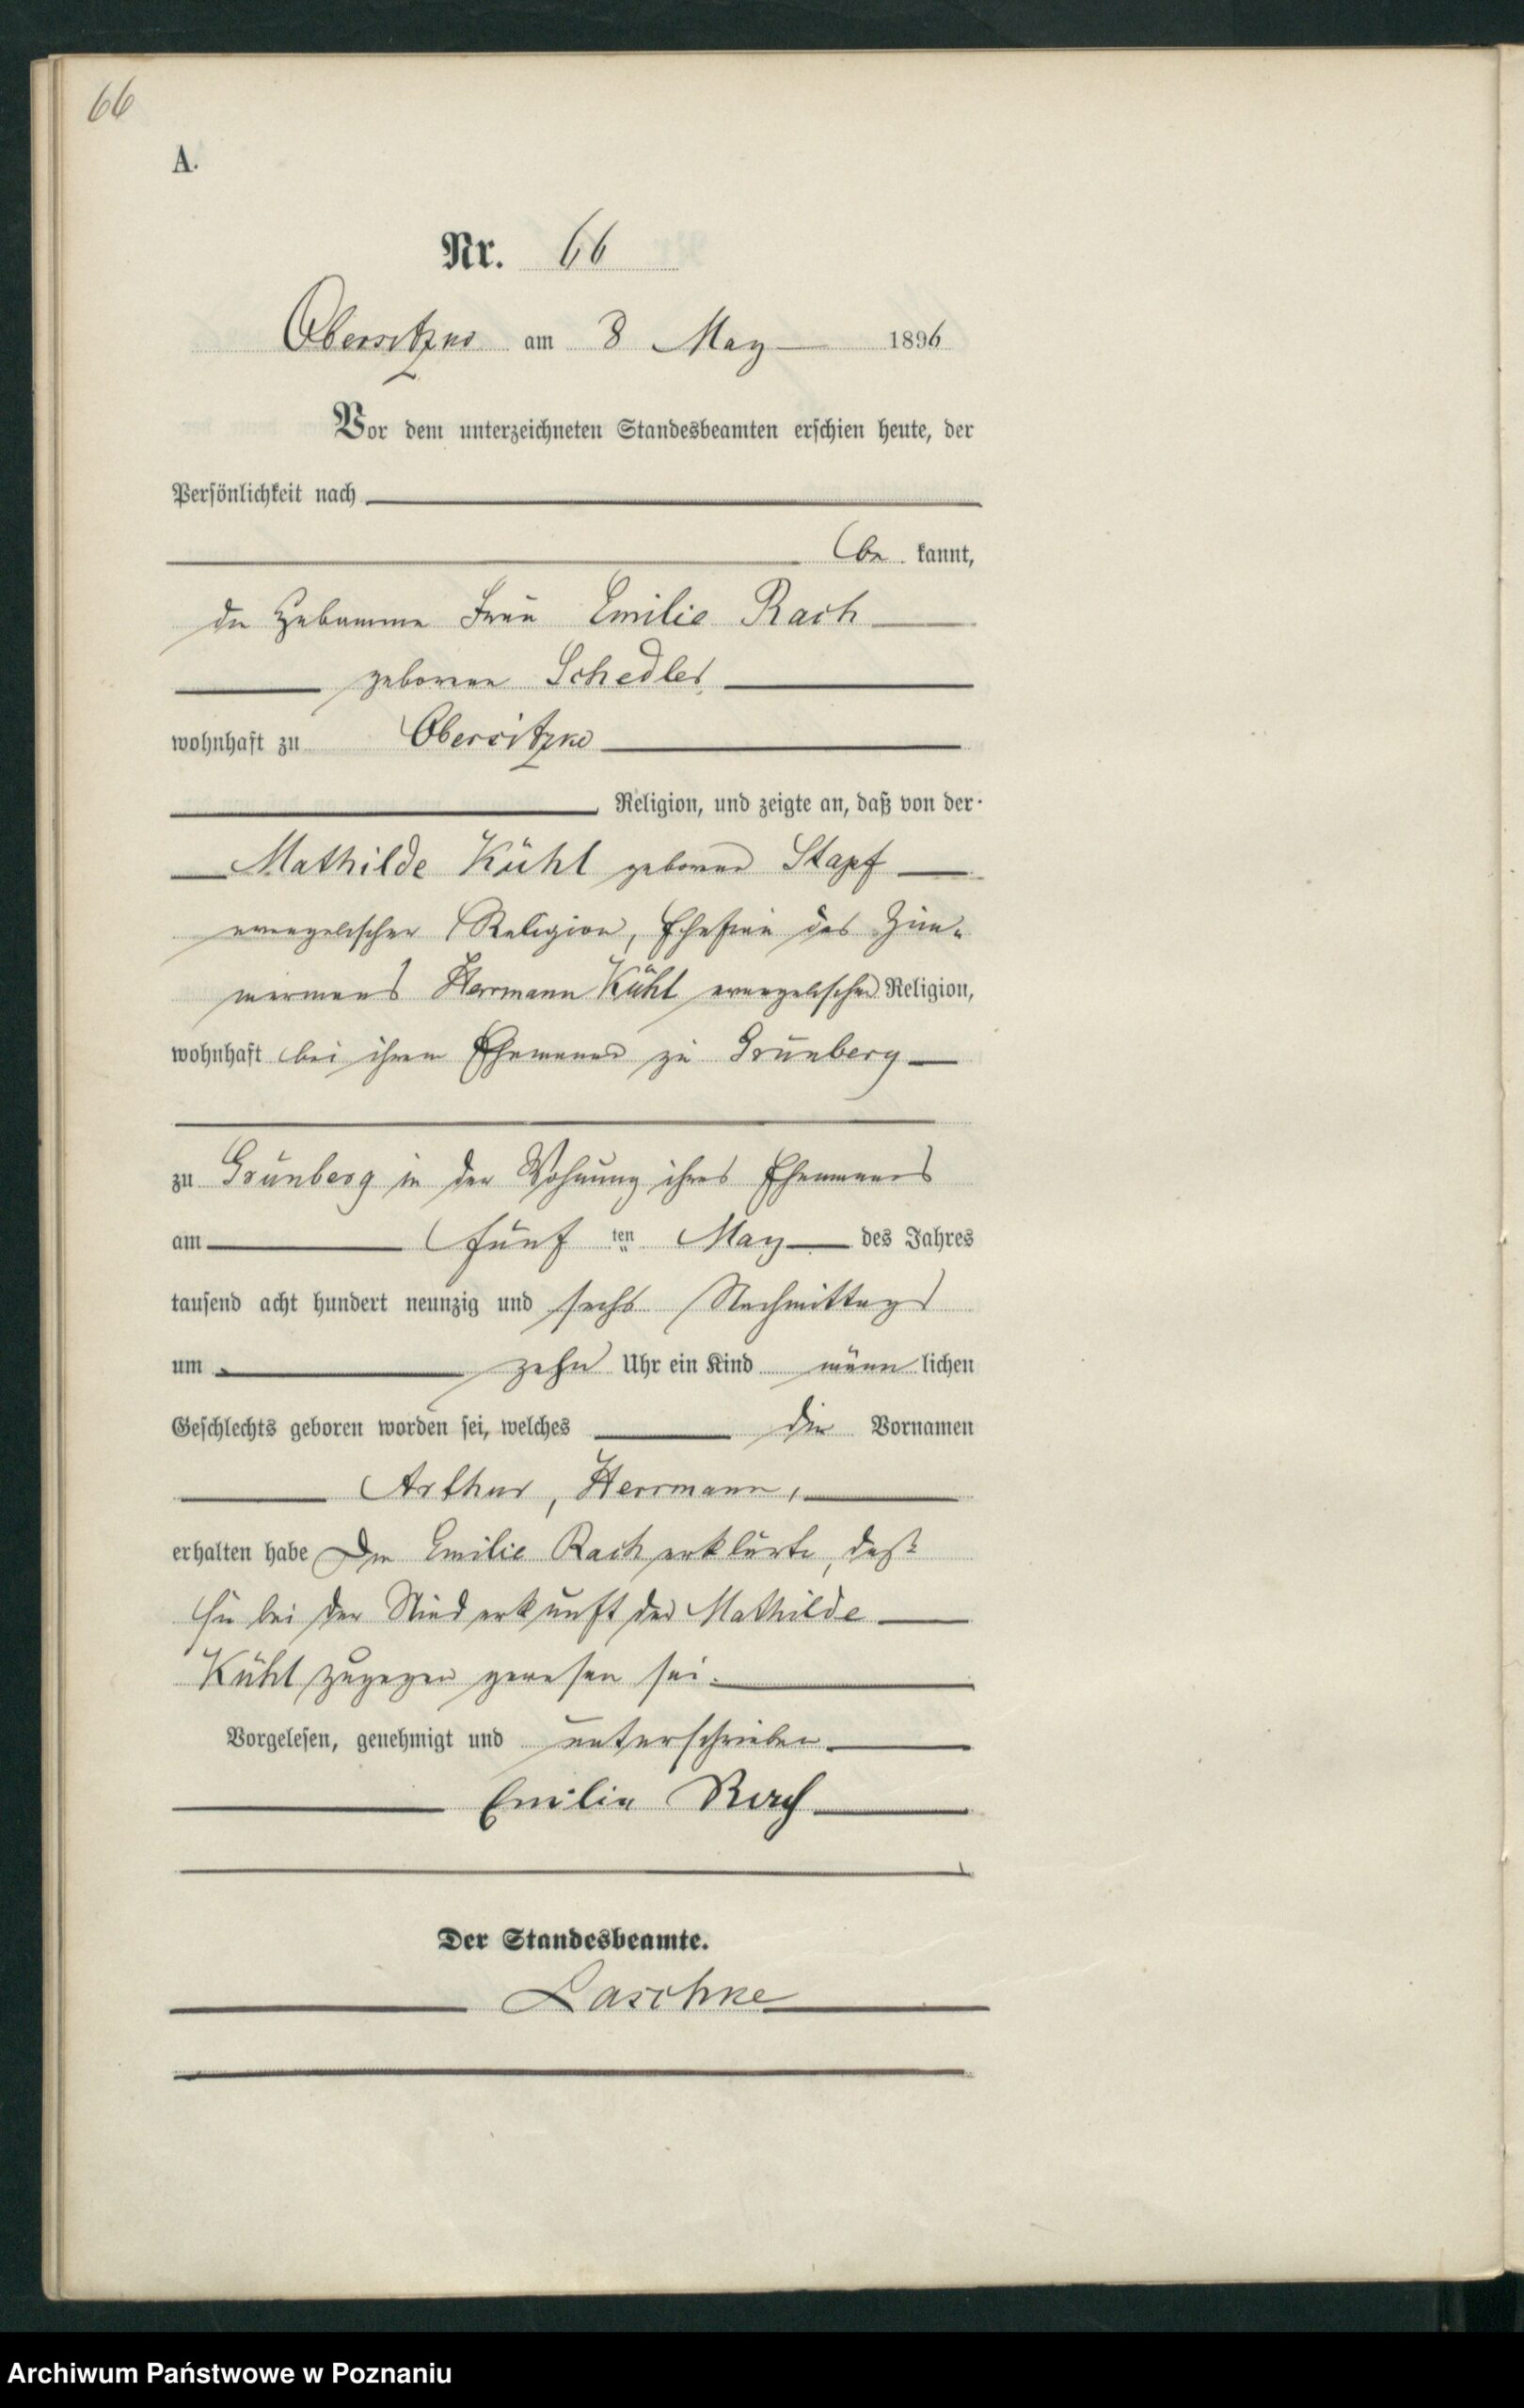 66
A.
Nr. 66
Obersitzko am 8 May 1896
Vor dem unterzeichneten Standesbeamten erschien heute, der
Persönlichkeit nach
be kannt,
die Hebamme Frau Emilie Rach
geborene Schedler
wohnhaft zu Obersitzko
Religion, und zeigte an, daß von der
Mathilde Kühl geborene Stapf
evangelischer Religion, Ehefrau des Zim-
mermanns Herrmann Kühl evangelischer Religion,
wohnhaft bei ihrem Ehemanne zu Grünberg
zu Grünberg in der Wohnung ihres Ehemannes
am fünf ten May des Jahres
tausend acht hundert neunzig und sechs Nachmittags
um zehn Uhr ein Kind männ lichen
Geschlechts geboren worden sei, welches die Vornamen
Arthur, Herrmann,
erhalten habe Die Emilie Rach erklärte, daß
sie bei der Niederkunft der Mathilde
Kühl zugegen gewesen sei.
Vorgelesen, genehmigt und unterschrieben
Emilie Rach
Der Standesbeamte.
Laschke
Archiwum Państwowe w Poznaniu